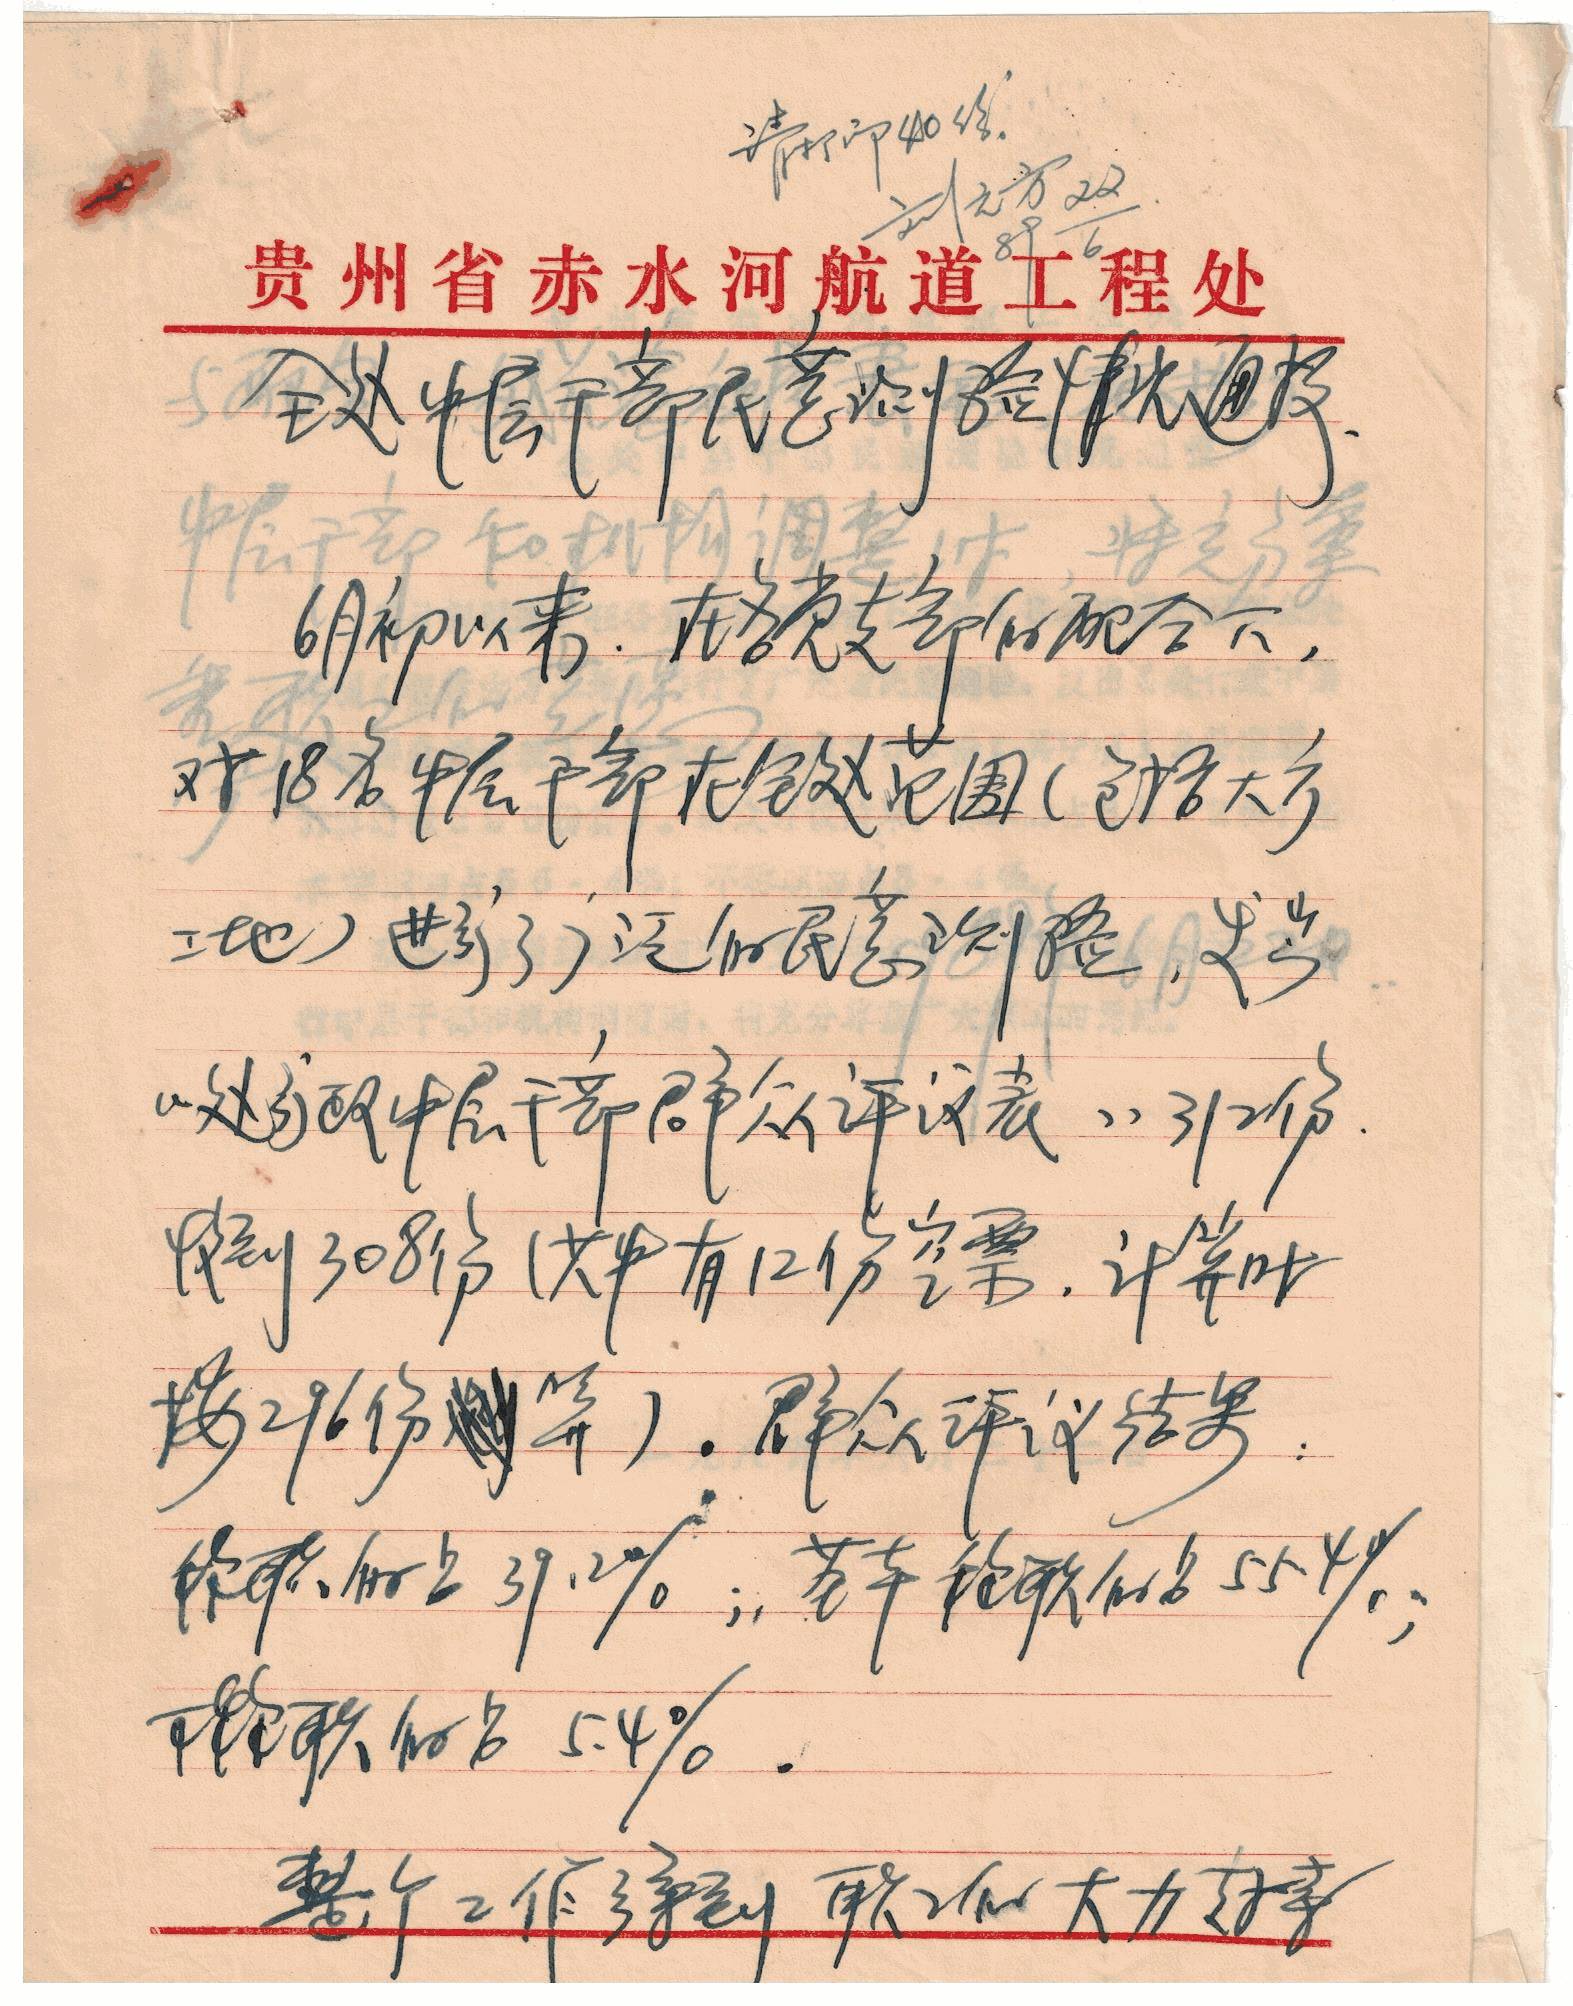 请打印40份.
刘元方 22/6
89
贵州省赤水河航道工程处
全处中层干部民意测验情况通报.
6月初以来.在各党支部的配合下,
对18名中层干部在全处范围(包括大方
工地)进行了广泛的民意测验,发出
"处行政中层干部群众评议表"312份.
收到308份(其中有12份空票.计算时
按296份算)。群众评议结果:
称职的占39.2%;基本称职的占55.4%;
不称职的占5.4%.
整个工作得到职工的大力支持